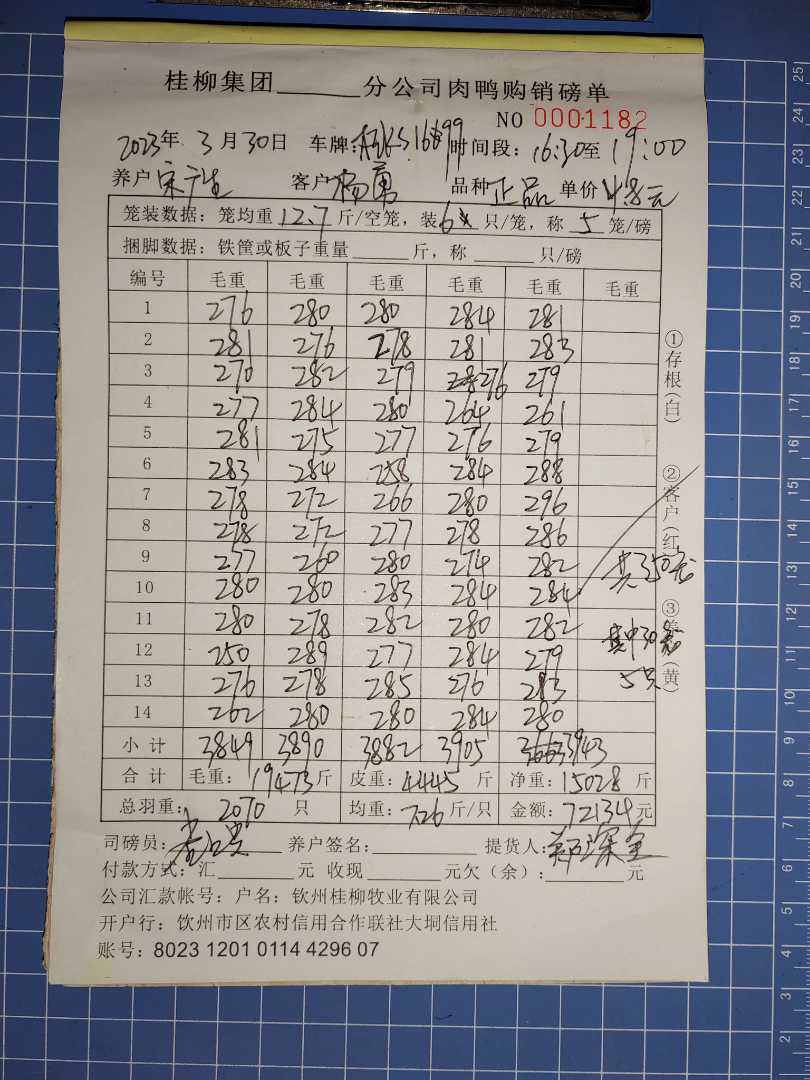 桂柳集团______分公司肉鸭购销磅单
NO 0001182
2023年 3月30日 车牌: 时间段：16:30至19:00
养户 宋 客户 杨勇 品种 正品 单价 4.8元
笼装数据：笼均重 12.7 斤/空笼，装 6 只/笼，称 5 笼/磅
捆脚数据：铁筐或板子重量______斤，称______只/磅
编号 毛重 毛重 毛重 毛重 毛重 毛重
1 276 280 280 284 281
2 281 276 278 281 283
3 270 282 279 276 279
4 277 284 280 264 261
5 281 275 277 276 279
6 283 284 258 284 288
7 278 272 266 280 296
8 278 272 277 278 286
9 257 260 280 274 282 共350笼
10 280 280 283 284 284
11 280 278 282 280 282
12 250 289 277 284 279 其中30笼
13 276 278 285 276 283 5只
14 262 280 280 284 280
小计 3849 3890 3882 3905 3943
合计 毛重：19473斤 皮重：4445斤 净重：15028斤
总羽重：2070 只 均重：7.26斤/只 金额：72134元
司磅员： 养户签名：______ 提货人：
付款方式：汇______元 收现______元欠（余）：______元
公司汇款帐号：户名：钦州桂柳牧业有限公司
开户行：饮州市区农村信用合作联社大垌信用社
账号：8023 1201 0114 4296 07
①存根(白) ②客户(红) ③ (黄)